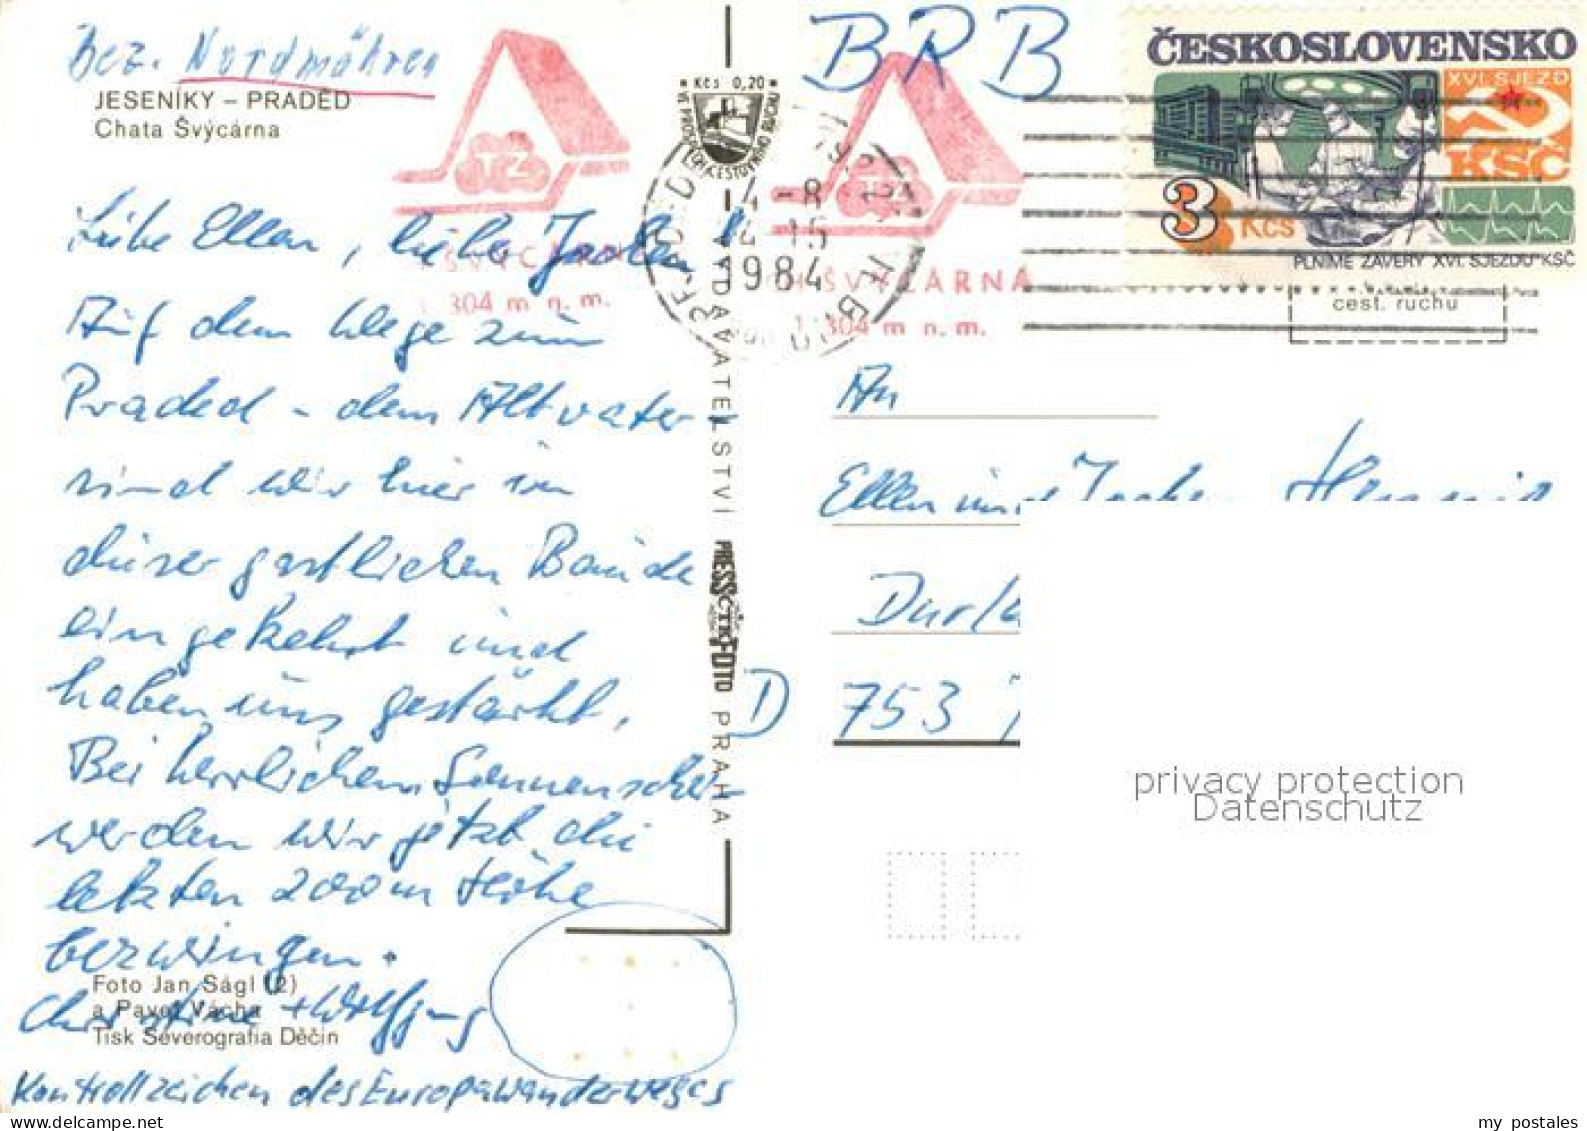 Bez. Nordmähren
JESENÍKY – PRADĚD
Chata Švýcárna
Liebe Ellen, liebe
Auf dem Wege zum
Praded – dem Altvater
sind wir hier in
dieser gastlichen Baude
eingekehrt und
haben uns gestärkt.
Bei herrlichem Sonnenschein
werden wir jetzt die
letzten 200 m Höhe
bezwingen.
Christine + Wolfgang
Foto Jan Ságl (2)
a Pavel Vácha
Tisk Severografia Děčín
Kontrollzeichen des Europawanderweges
TZ
1304 m n. m.
Kčs 0,20
4 -8
1984
VYDAVATELSTVÍ PRESSFOTO PRAHA
BRB
TZ
ŠVÝCÁRNA
1304 m n. m.
ČESKOSLOVENSKO
XVI. SJEZD
KSČ
3 Kčs
PLNÍME ZÁVĚRY XVI. SJEZDU KSČ
cest. ruchu
An
Ellen und
D 753
privacy protection
Datenschutz
delcampe.net
my_postales